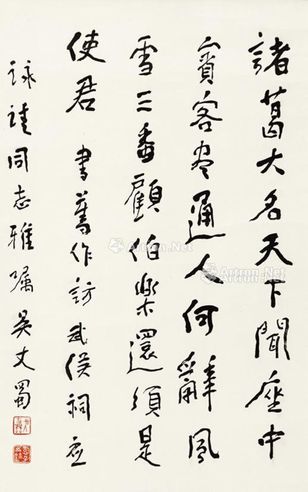 諸葛大名天下聞座中
賓客盡通人何辭風
雪三番顧伯樂還須是
使君 書舊作訪武侯祠应
詠諽同志雅嘱 吴丈蜀